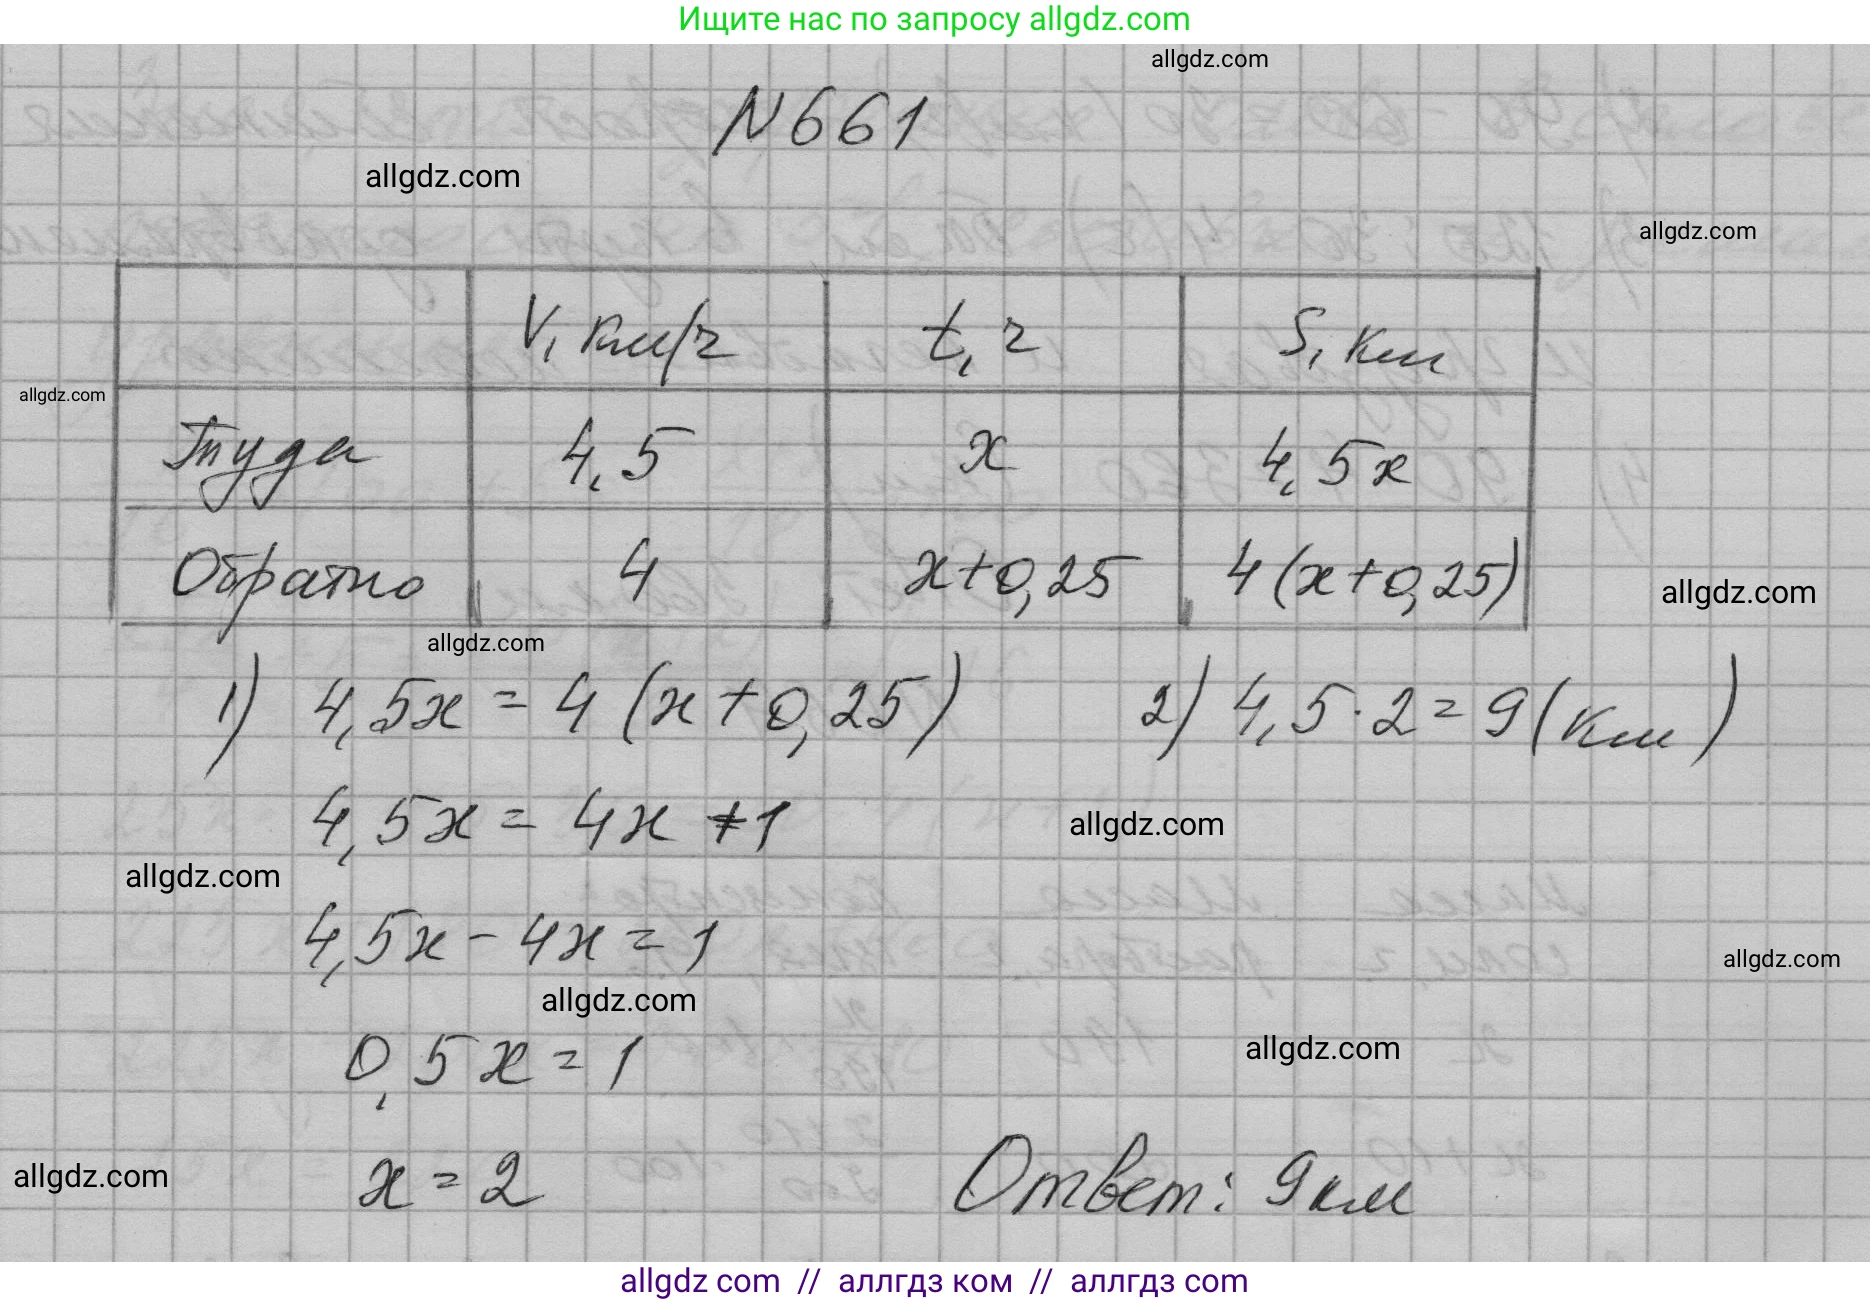 Ищите нас по запросу allgdz.com
allgdz.com
N661
allgdz.com
allgdz.com
V, км/ч t, ч S, км
allgdz.com
Туда 4,5 x 4,5x
Обратно 4 x+0,25 4(x+0,25)
allgdz.com
allgdz.com
1) 4,5x = 4(x+0,25)
2) 4,5·2=9(км)
4,5x = 4x+1
allgdz.com
allgdz.com
4,5x-4x=1
allgdz.com
allgdz.com
0,5x=1
allgdz.com
x=2
allgdz.com
Ответ: 9км
allgdz com // аллгдз ком // аллгдз com